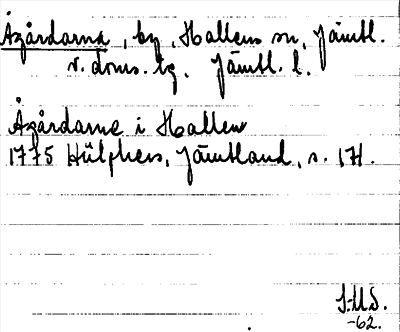 Åsårdarna, by, Hallens sn, Jämtl.
v. doms. tg. Jämtl. l.
Åsårdarne i Hallen
1775 Hülphers, Jämtland, s. 171.
S.M.S.
-62.